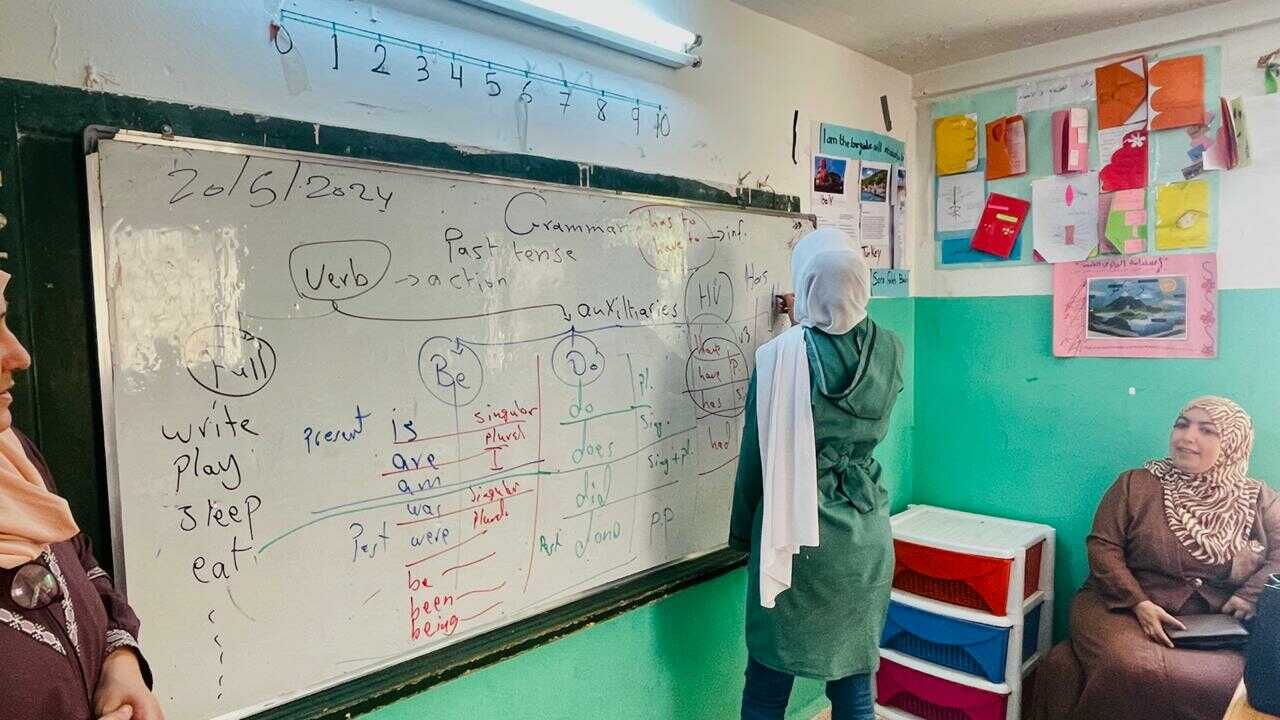 0 1 2 3 4 5 6 7 8 9 10
20/5/2024
Grammar
has to
have to → inf.
Past tense
Verb → action
auxiliaries
HV
Has
Full
Be
Do
have v3
have P.
has si
had
write
play
sleep
eat
present is singular
are plural
am I
was singular
Past were plural
be
been
being
do pl.
does sing.
did sing + pl.
Past done p.p
I am the
Italy
Turkey